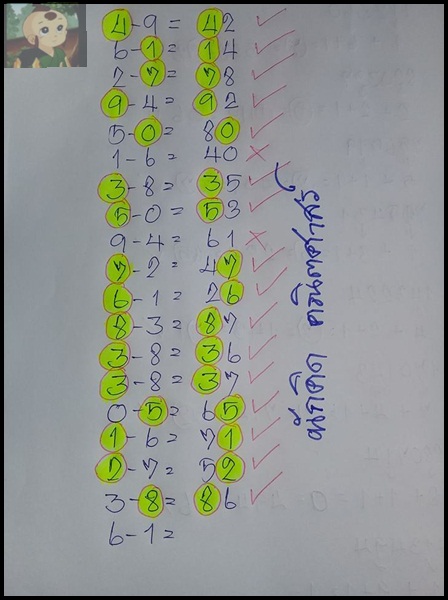 4-9= 42 ✓
6-1= 14 ✓
2-7= 78 ✓
9-4= 92 ✓
5-0= 80 ✓
1-6= 40 ✗
3-8= 35 ✓
5-0= 53 ✓
9-4= 61 ✗
7-2= 47 ✓
6-1= 26 ✓
8-3= 87 ✓
3-8= 36 ✓
3-8= 37 ✓
0-5= 65 ✓
1-6= 71 ✓
2-7= 52 ✓
3-8= 86 ✓
6-1=